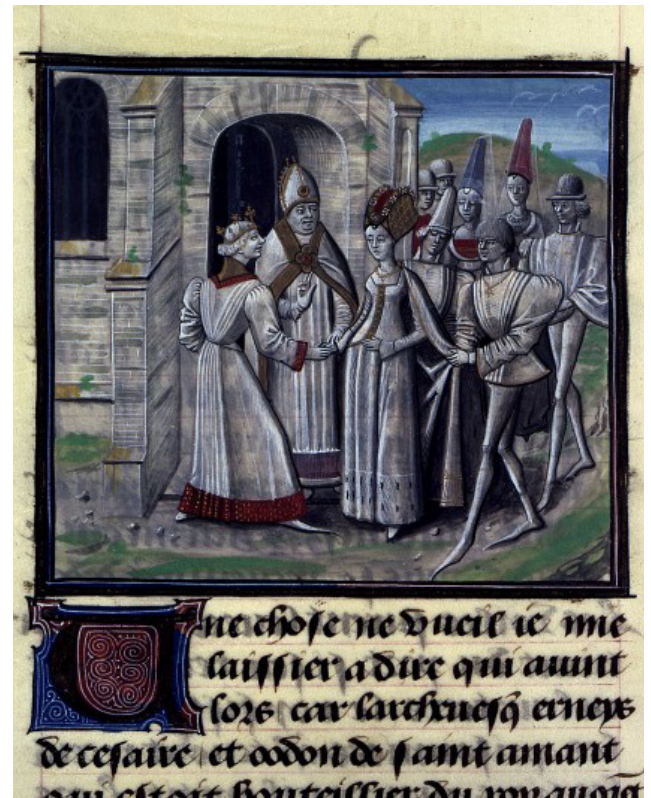 Une chose ne vueil ie mie
laissier a dire qui auint
lors car larcheuesq̃ erneys
de cesaire et oodon de saint amant
qui estoit bouteillier du roy auoiẽt